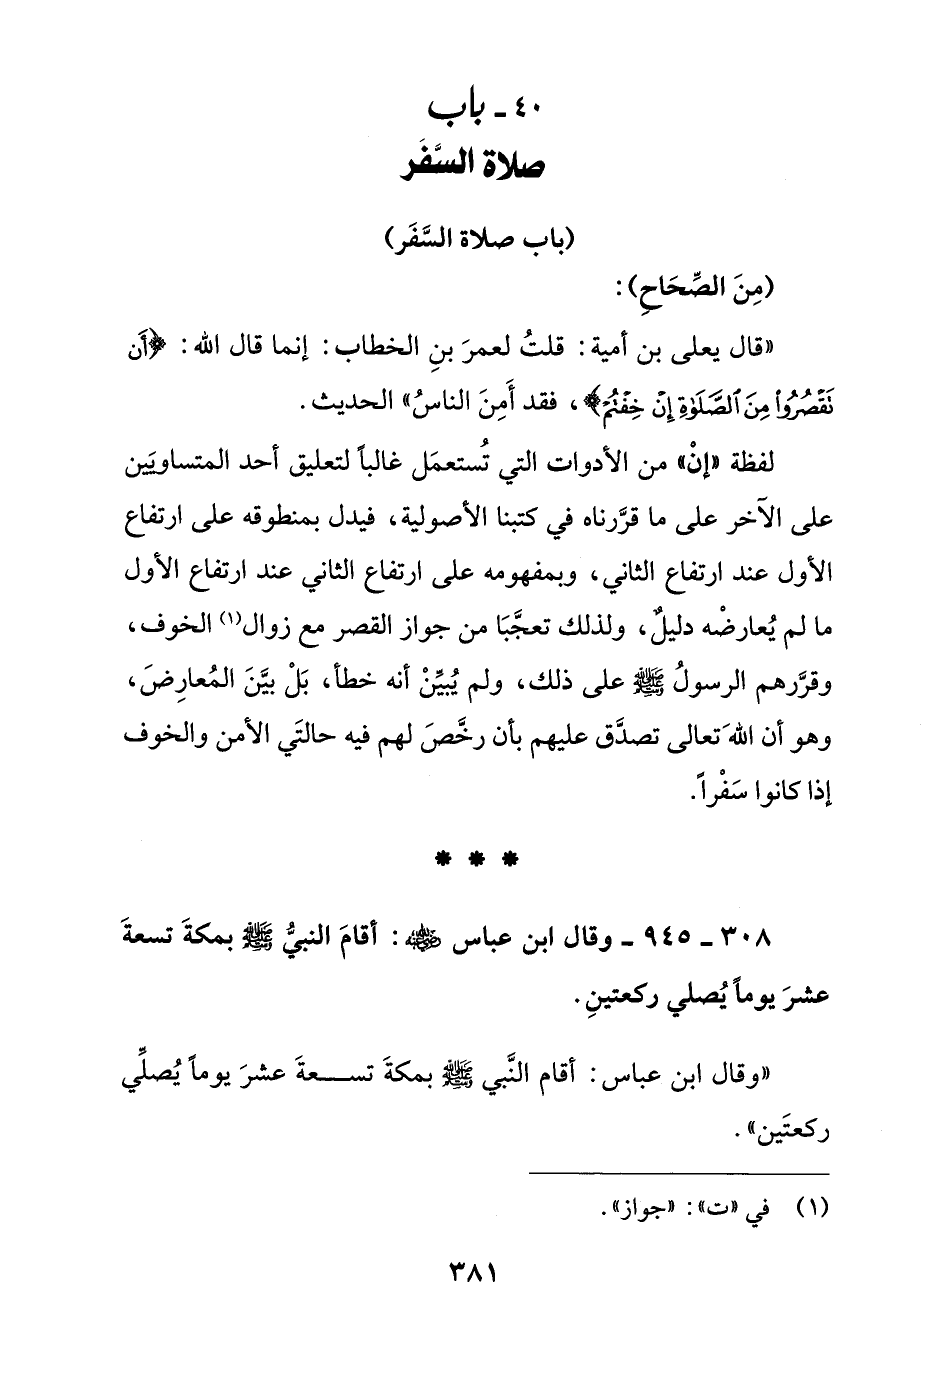 ٤٠ ـ باب
صلاة السَّفَر
(باب صلاة السَّفَر)
(مِنَ الصِّحَاحِ):
«قال يعلى بن أمية: قلتُ لعمرَ بنِ الخطاب: إنما قال الله: ﴿أَن
نَقْصُرُوا۟ مِنَ ٱلصَّلَوٰةِ إِنْ خِفْتُمْ﴾، فقد أَمِنَ الناسُ» الحديث.
لفظة «إنْ» من الأدوات التي تُستعمَل غالباً لتعليق أحد المتساويَين
على الآخر على ما قرَّرناه في كتبنا الأصولية، فيدل بمنطوقه على ارتفاع
الأول عند ارتفاع الثاني، وبمفهومه على ارتفاع الثاني عند ارتفاع الأول
ما لم يُعارضْه دليلٌ، ولذلك تعجَّبَا من جواز القصر مع زوال(١) الخوف،
وقرَّرهم الرسولُ ﷺ على ذلك، ولم يُبيِّنْ أنه خطأ، بَلْ بيَّنَ المُعارِضَ،
وهو أن اللهَ تعالى تصدَّق عليهم بأن رخَّصَ لهم فيه حالتَي الأمن والخوف
إذا كانوا سَفْراً.
* * *
٣٠٨ ـ ٩٤٥ ـ وقال ابن عباس ﵁: أقامَ النبيُّ ﷺ بمكةَ تسعةَ
عشرَ يوماً يُصلي ركعتينِ.
«وقال ابن عباس: أقام النَّبي ﷺ بمكةَ تســعةَ عشرَ يوماً يُصلِّي
ركعتَين».
(١) في «ت»: «جواز».
٣٨١